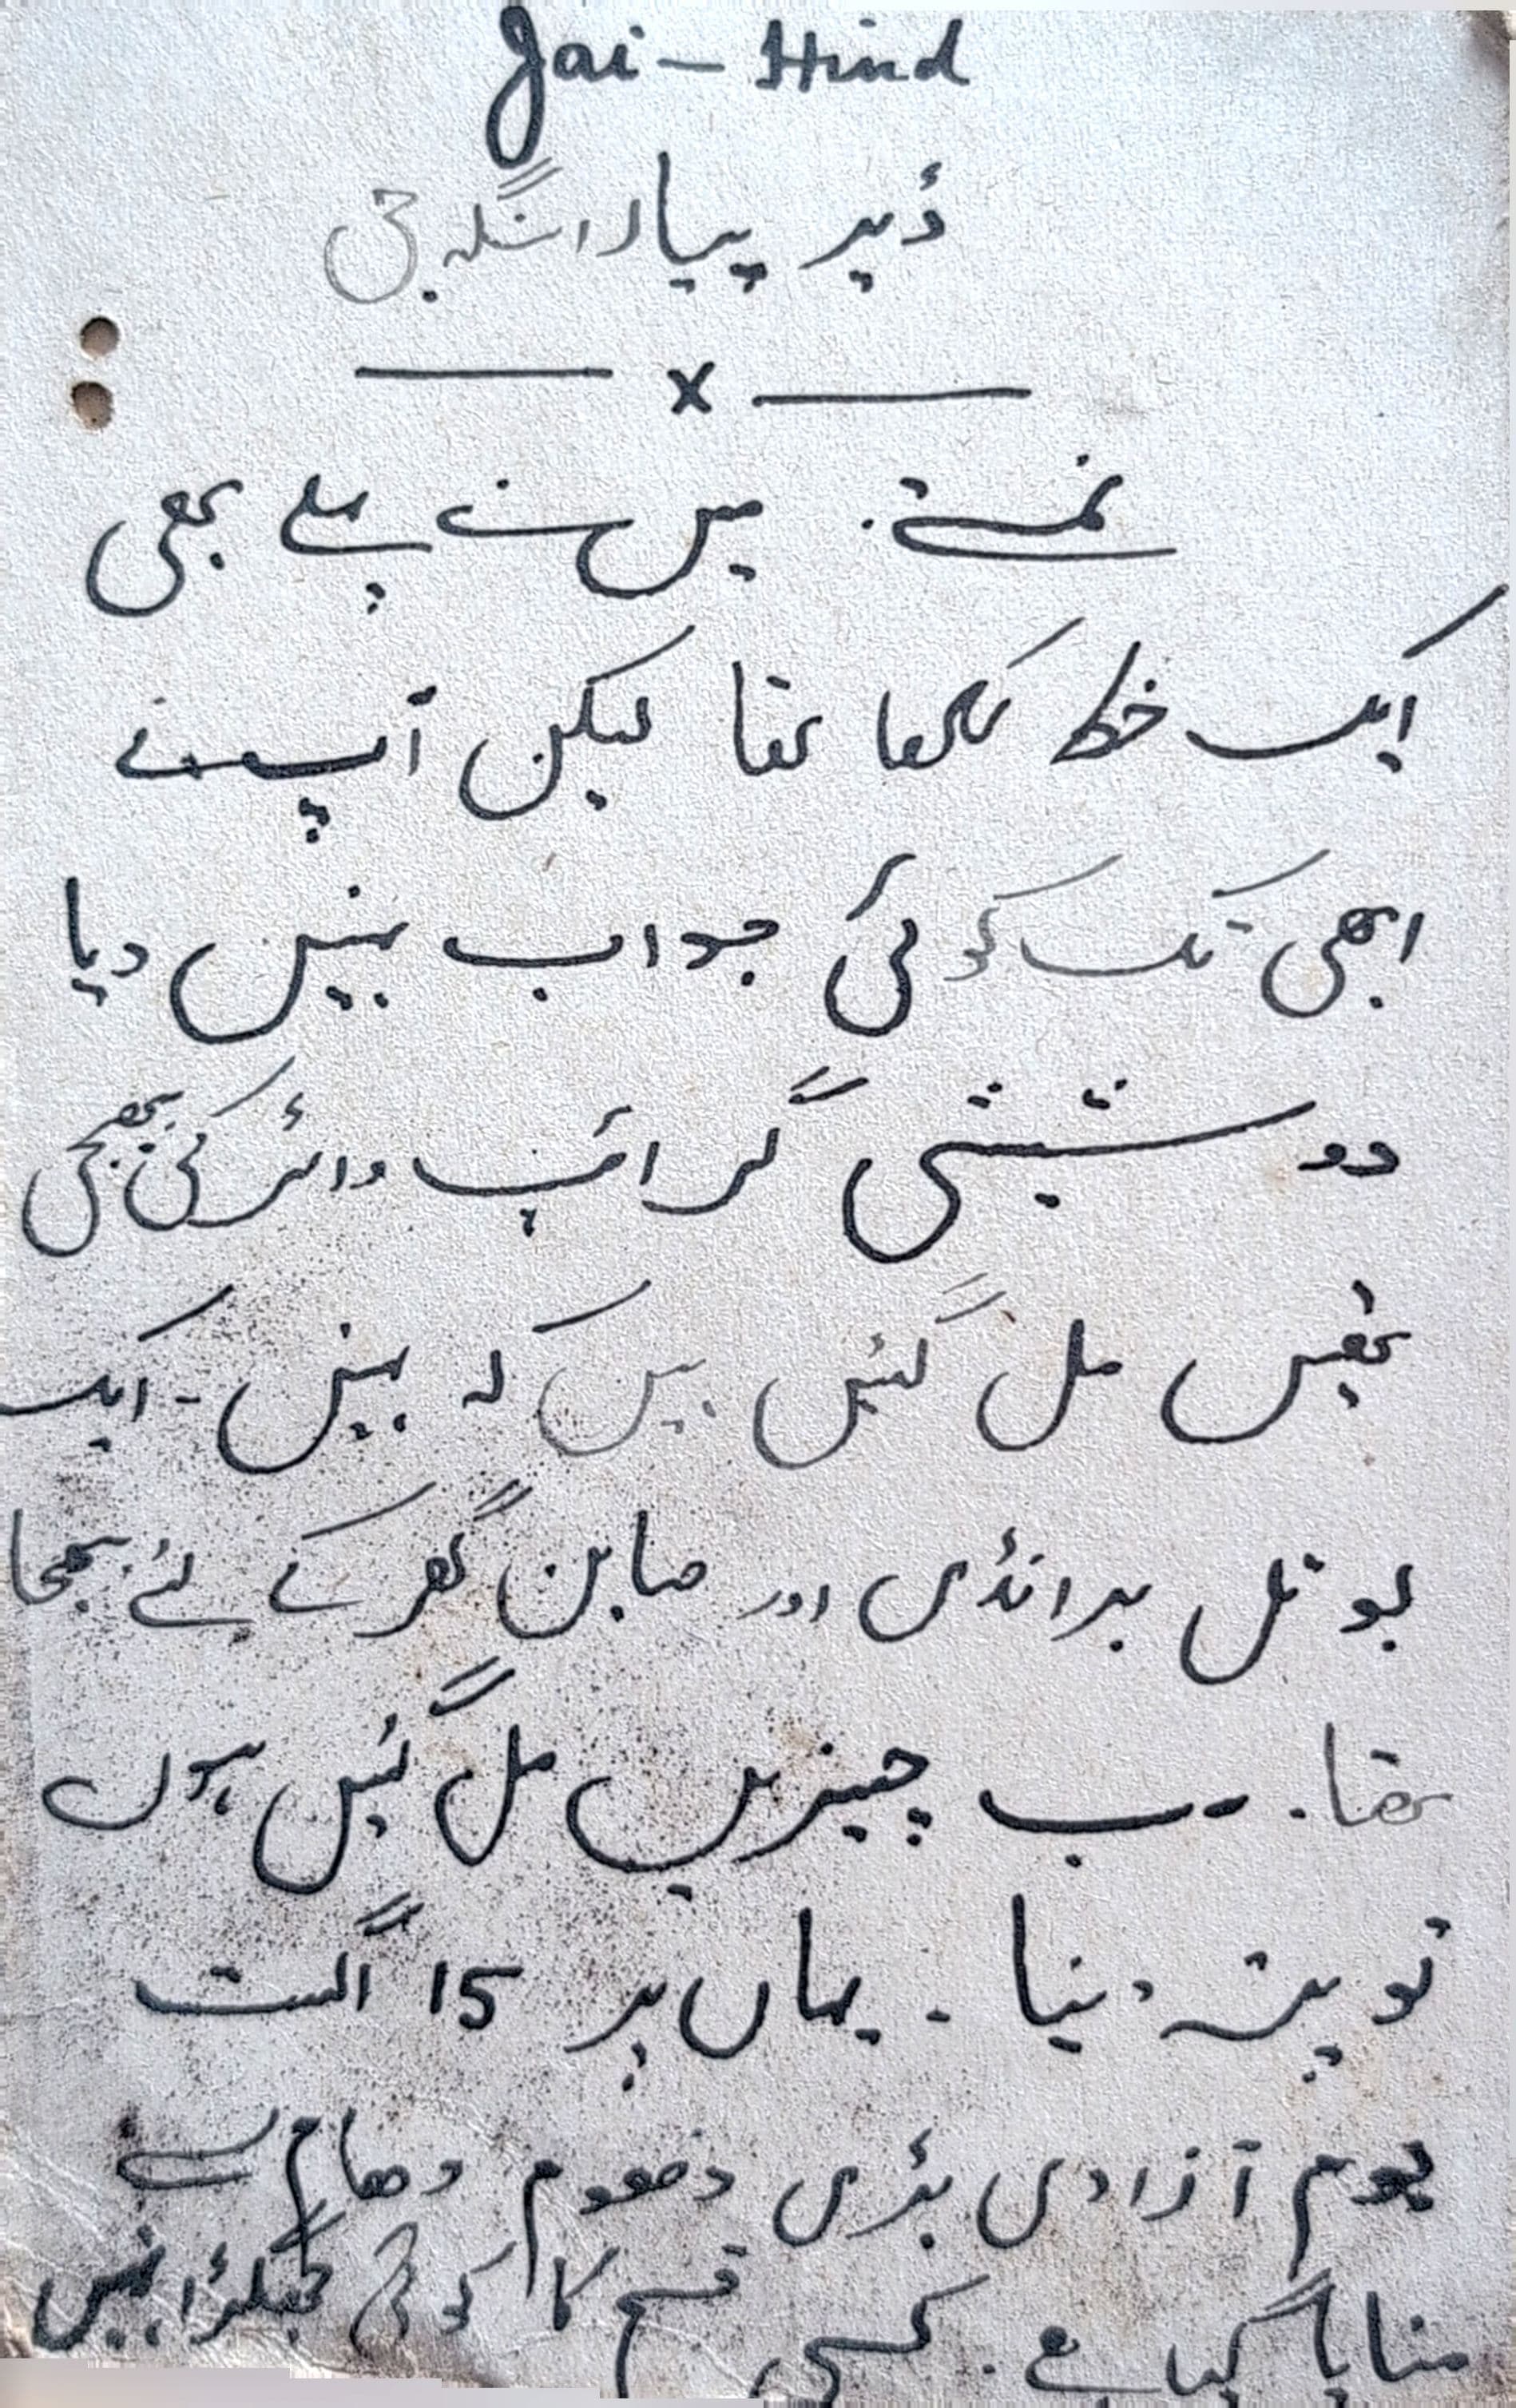 Jai - Hind
ڈیر پیارا سنگھ جی
x
نمستے. میں نے پہلے بھی
ایک خط لکھا تھا لیکن آپ نے
ابھی تک کوئی جواب نہیں دیا
دو شیشی گرائپ وائر کی بھیجی
تھیں مل گئیں ہیں کہ نہیں - ایک
بوتل برانڈی اور صابن گھر کے لئے بھیجا
تھا. سب چیزیں مل گئیں ہوں
تو پتہ دینا - یہاں پر 15 اگست
یوم آزادی بڑی دھوم دھام سے
منایا گیا ہے. کسی قسم کا کوئی جھگڑا نہیں